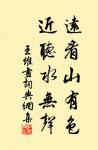 遠看山有色
近聽水無聲
王維書詞典網集